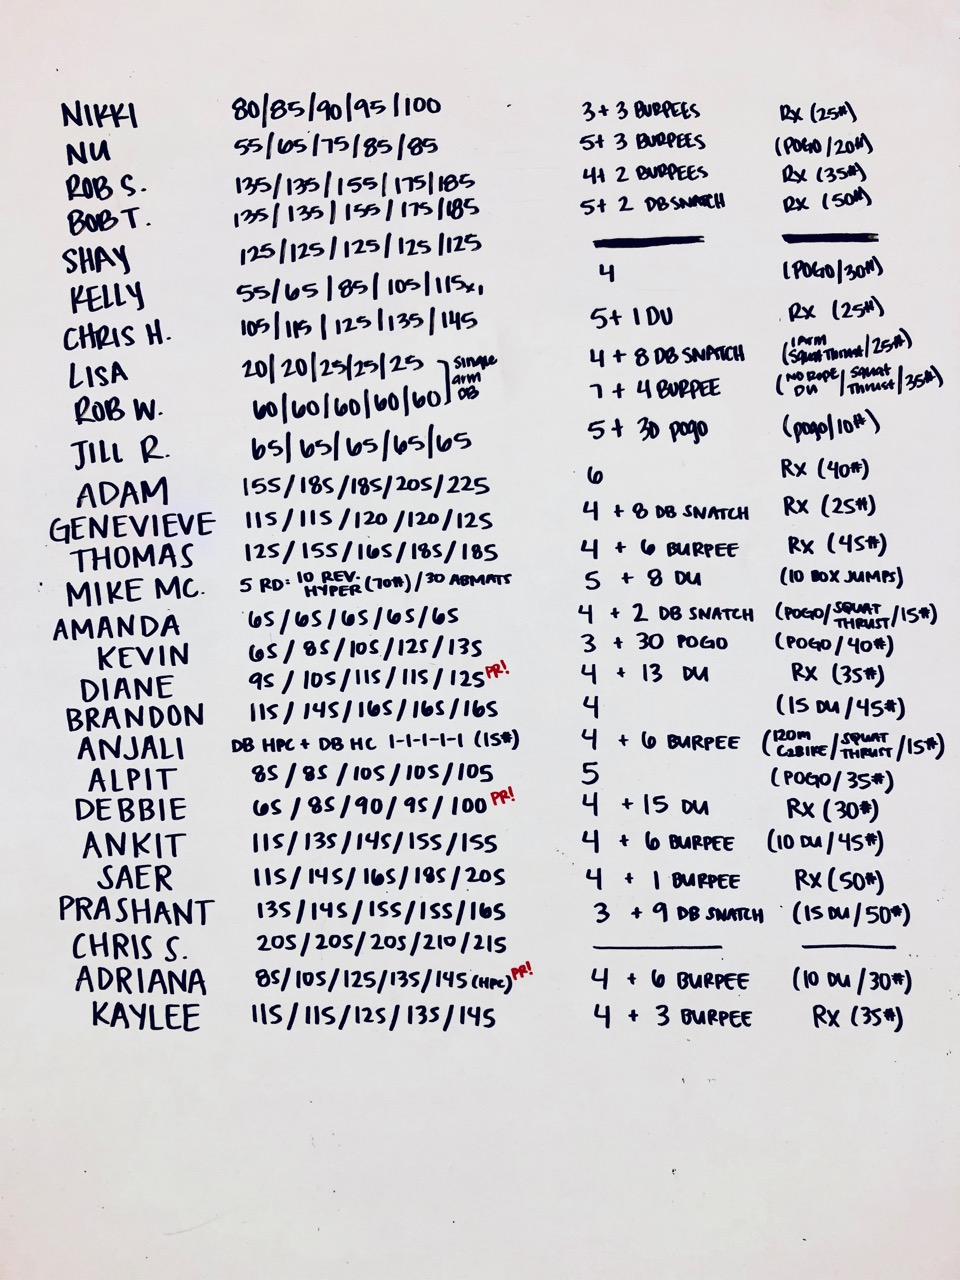 NIKKI 80/85/90/95/100 3+3 BURPEES RX (25#)
NU 55/65/75/85/85 5+ 3 BURPEES (POGO/20#)
ROB S. 135/135/155/175/185 4+ 2 BURPEES RX (35#)
BOB T. 135/135/155/175/185 5+ 2 DB SNATCH RX (50#)
SHAY 125/125/125/125/125
KELLY 55/65/85/105/115x1 4 (POGO/30#)
CHRIS H. 105/115/125/135/145 5+ 1 DU RX (25#)
LISA 20/20/25/25/25 single arm DB 4 + 8 DB SNATCH (1 ARM Squat Thrust/25#)
ROB W. 60/60/60/60/60 7 + 4 BURPEE (NO ROPE DU/Squat Thrust/35#)
JILL R. 65/65/65/65/65 5 + 30 pogo (pogo/10#)
ADAM 155/185/185/205/225 6 RX (40#)
GENEVIEVE 115/115/120/120/125 4 + 8 DB SNATCH RX (25#)
THOMAS 125/155/165/185/185 4 + 6 BURPEE RX (45#)
MIKE MC. 5 RD: 10 REV. HYPER (70#)/30 ABMATS 5 + 8 DU (10 BOX JUMPS)
AMANDA 65/65/65/65/65 4 + 2 DB SNATCH (POGO/SQUAT THRUST/15#)
KEVIN 65/85/105/125/135 3 + 30 POGO (POGO/40#)
DIANE 95/105/115/115/125 PR! 4 + 13 DU RX (35#)
BRANDON 115/145/165/165/165 4 (15 DU/45#)
ANJALI DB HPC + DB HC 1-1-1-1-1 (15#) 4 + 6 BURPEE (120M C2BIKE/SQUAT THRUST/15#)
ALPIT 85/85/105/105/105 5 (POGO/35#)
DEBBIE 65/85/90/95/100 PR! 4 + 15 DU RX (30#)
ANKIT 115/135/145/155/155 4 + 6 BURPEE (10 DU/45#)
SAER 115/145/165/185/205 4 + 1 BURPEE RX (50#)
PRASHANT 135/145/155/155/165 3 + 9 DB SNATCH (15 DU/50#)
CHRIS S. 205/205/205/210/215
ADRIANA 85/105/125/135/145 (HPC) PR! 4 + 6 BURPEE (10 DU/30#)
KAYLEE 115/115/125/135/145 4 + 3 BURPEE RX (35#)